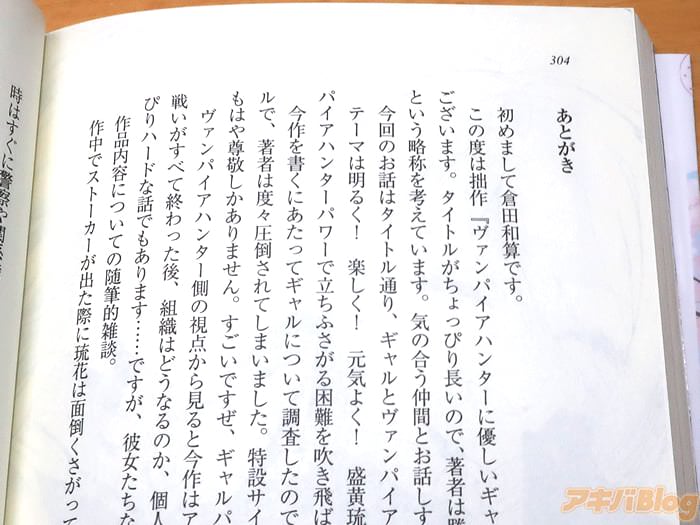 304
あとがき
初めまして倉田和算です。
この度は拙作『ヴァンパイアハンターに優しいギャ
ございます。タイトルがちょっぴり長いので、著者は勝
という略称を考えています。気の合う仲間とお話しす
今回のお話はタイトル通り、ギャルとヴァンパイア
テーマは明るく！　楽しく！　元気よく！　盛黄琉
パイアハンターパワーで立ちふさがる困難を吹き飛ば
今作を書くにあたってギャルについて調査したので
ルで、著者は度々圧倒されてしまいました。特設サイ
もはや尊敬しかありません。すごいですぜ、ギャルパ
ヴァンパイアハンター側の視点から見ると今作はア
戦いがすべて終わった後、組織はどうなるのか、個人
ぴりハードな話でもあります……ですが、彼女たちな
作品内容についての随筆的雑談。
作中でストーカーが出た際に琉花は面倒くさがって
時はすぐに警察や
アキバBlog